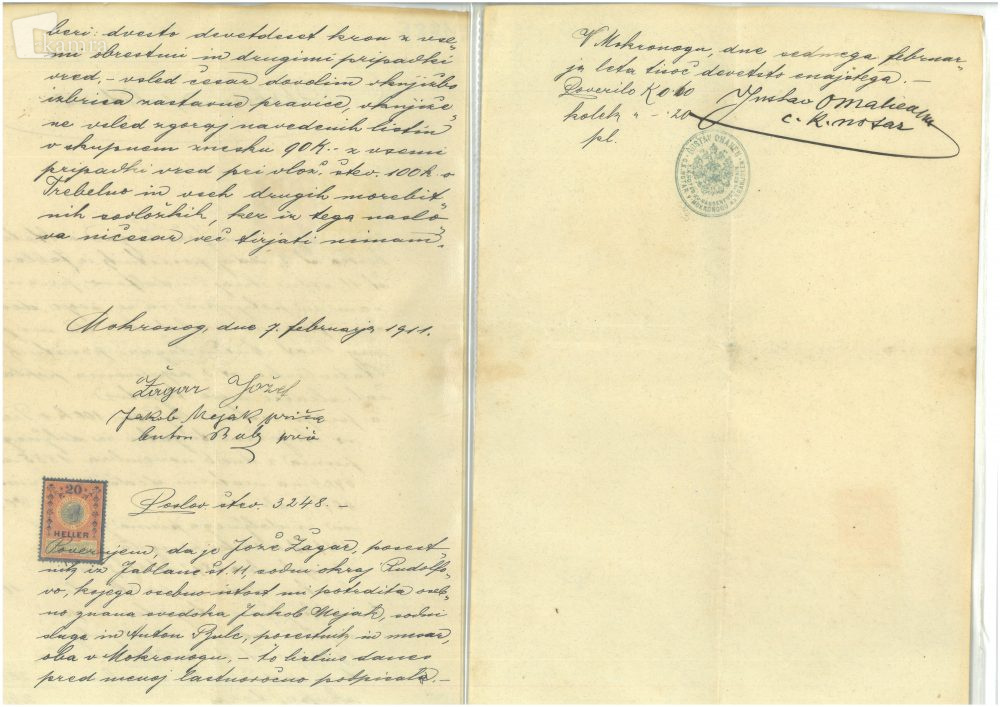 kamra
beri: dvesto devetdeset kron z vse„
mi obrestmi in drugimi pripadki
vred. – vsled česar dovolim vknjižbo
izbrisa zastavne pravice, vknjiže„
ne vsled zgoraj navedenih listin
v skupnem znesku 90 K. – z vsemi
pripadki vred pri vlož. štev. 100 k. o.
Trebelno in vseh drugih morebit„
nih sovložkih, ker iz tega naslo„
va ničesar več tirjati nimam.
Mokronog, dne 7. februarja 1911.
Žagar Jožef
Jakob Mejak priča
Anton Bulc
Poslov. štev. 3248. –
Poverujem, da je Jože Žagar, posest„
nik iz Jablane št. 11, sodni okraj Rudolfo„
vo, kojega osebno istost mi potrdita oseb„
no znana svedoka Jakob Mejak, sodni
sluga in Anton Bulc, posestnik in mesar,
oba v Mokronogu, – to listino danes
pred menoj lastnoročno
20
HELLER
V Mokronogu, dne sedmega februar„
ja leta tisoč devetsto enajstega. –
Poverilo K
kolek " – ·20
pl.
c. k. notar